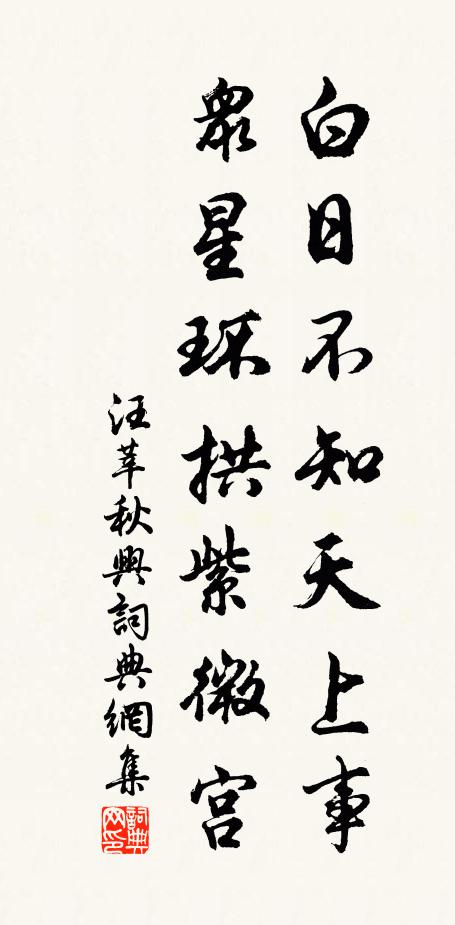 白日不知天上事
眾星环拱紫微宮
汪莘秋興詞典網集
詞典网印